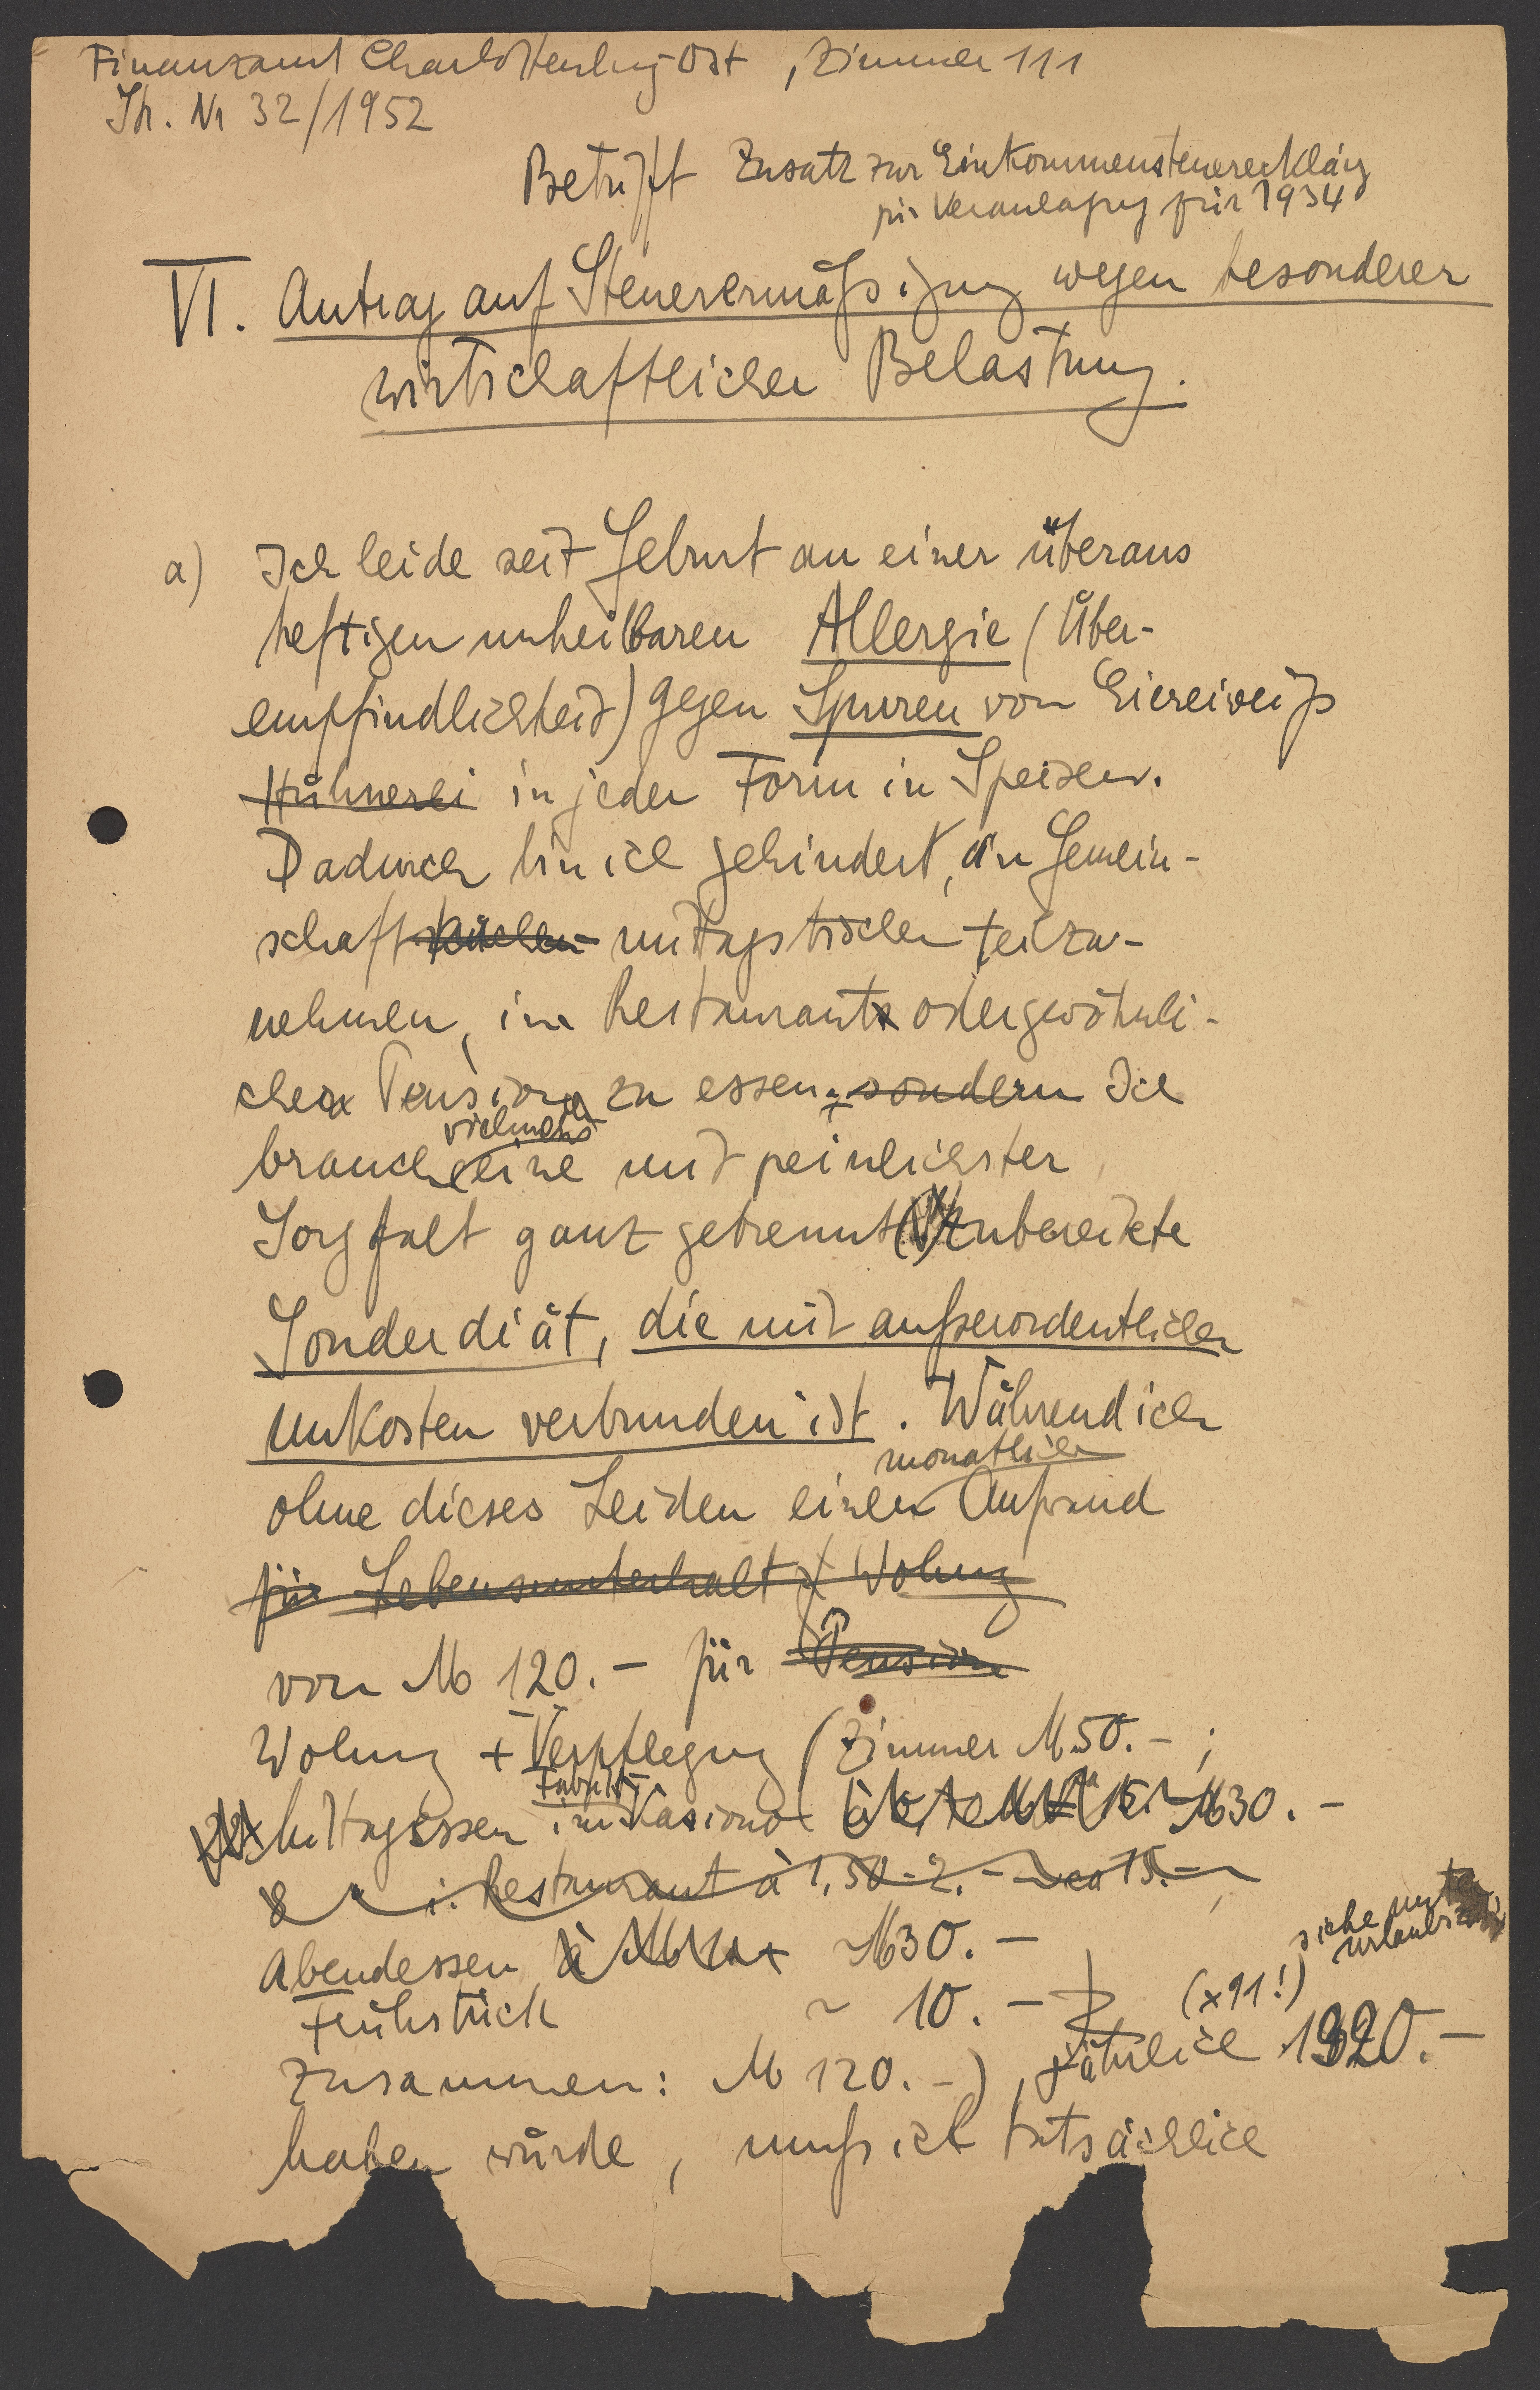 Finanzamt Charlottenburg-Ost, Zimmer 111
St. Nr 32/1952
Betrifft Zusatz zur Einkommensteuererklärg
für Veranlagung für 1934
VI. Antrag auf Steuerermäßigung wegen besonderer
wirtschaftlicher Belastung.
a) Ich leide seit Geburt an einer überaus
heftigen unheilbaren Allergie (Über-
empfindlichkeit) gegen Spuren von Eiereiweiß
Hühnerei in jeder Form in Speisen.
Dadurch bin ich gehindert, an Gemein-
schaftsküchen mittagstischen teilzu-
nehmen, im Restaurant oder gewöhnli-
cher Pension zu essen; sondern Ich
vielmehr
brauche eine mit peinlichster
Sorgfalt ganz getrennt zubereitete
Sonderdiät, die mit außerordentlichen
Unkosten verbunden ist. Während ich
monatlichen
ohne dieses Leiden einen Aufwand
für Lebensunterhalt + Wohng
von M 120.- für Pension
Wohng + Verpflegung (Zimmer M 50.-;
Fabrik
Mittagessen im Kasino M 30.-
i. Restaurant à 1,50-2.- ca 15.-
siehe unten
Urlaubs
Abendessen M 30.-
Frühstück 10.-
(x 11!)
zusammen: M 120.-), jährlich 1320.-
haben würde, muß ich tatsächlich